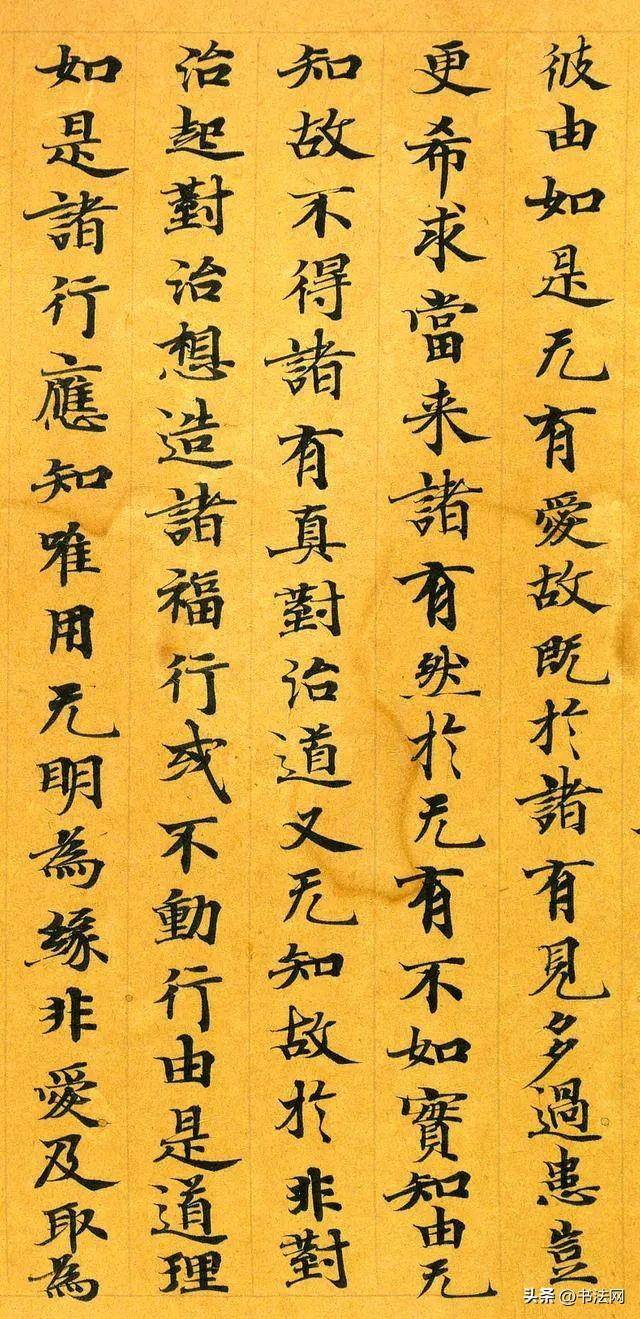 彼由如是无有愛故既於諸有見多過患豈
更希求當来諸有然於无有不如實知由无
知故不得諸有真對治道又无知故於非對
治起對治想造諸福行或不動行由是道理
如是諸行應知唯用无明為緣非愛及取為
头条 @书法网